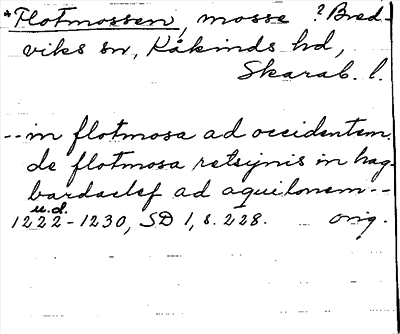 *Flotmossen, mosse ? Bred-
viks sn, Kåkinds hd,
Skarab. l.
-- in flotmosa ad occidentem.
de flotmosa retsynis in hag-
bardaclef ad aquilonem --
u.d.
1222-1230, SD 1, s. 228. orig.